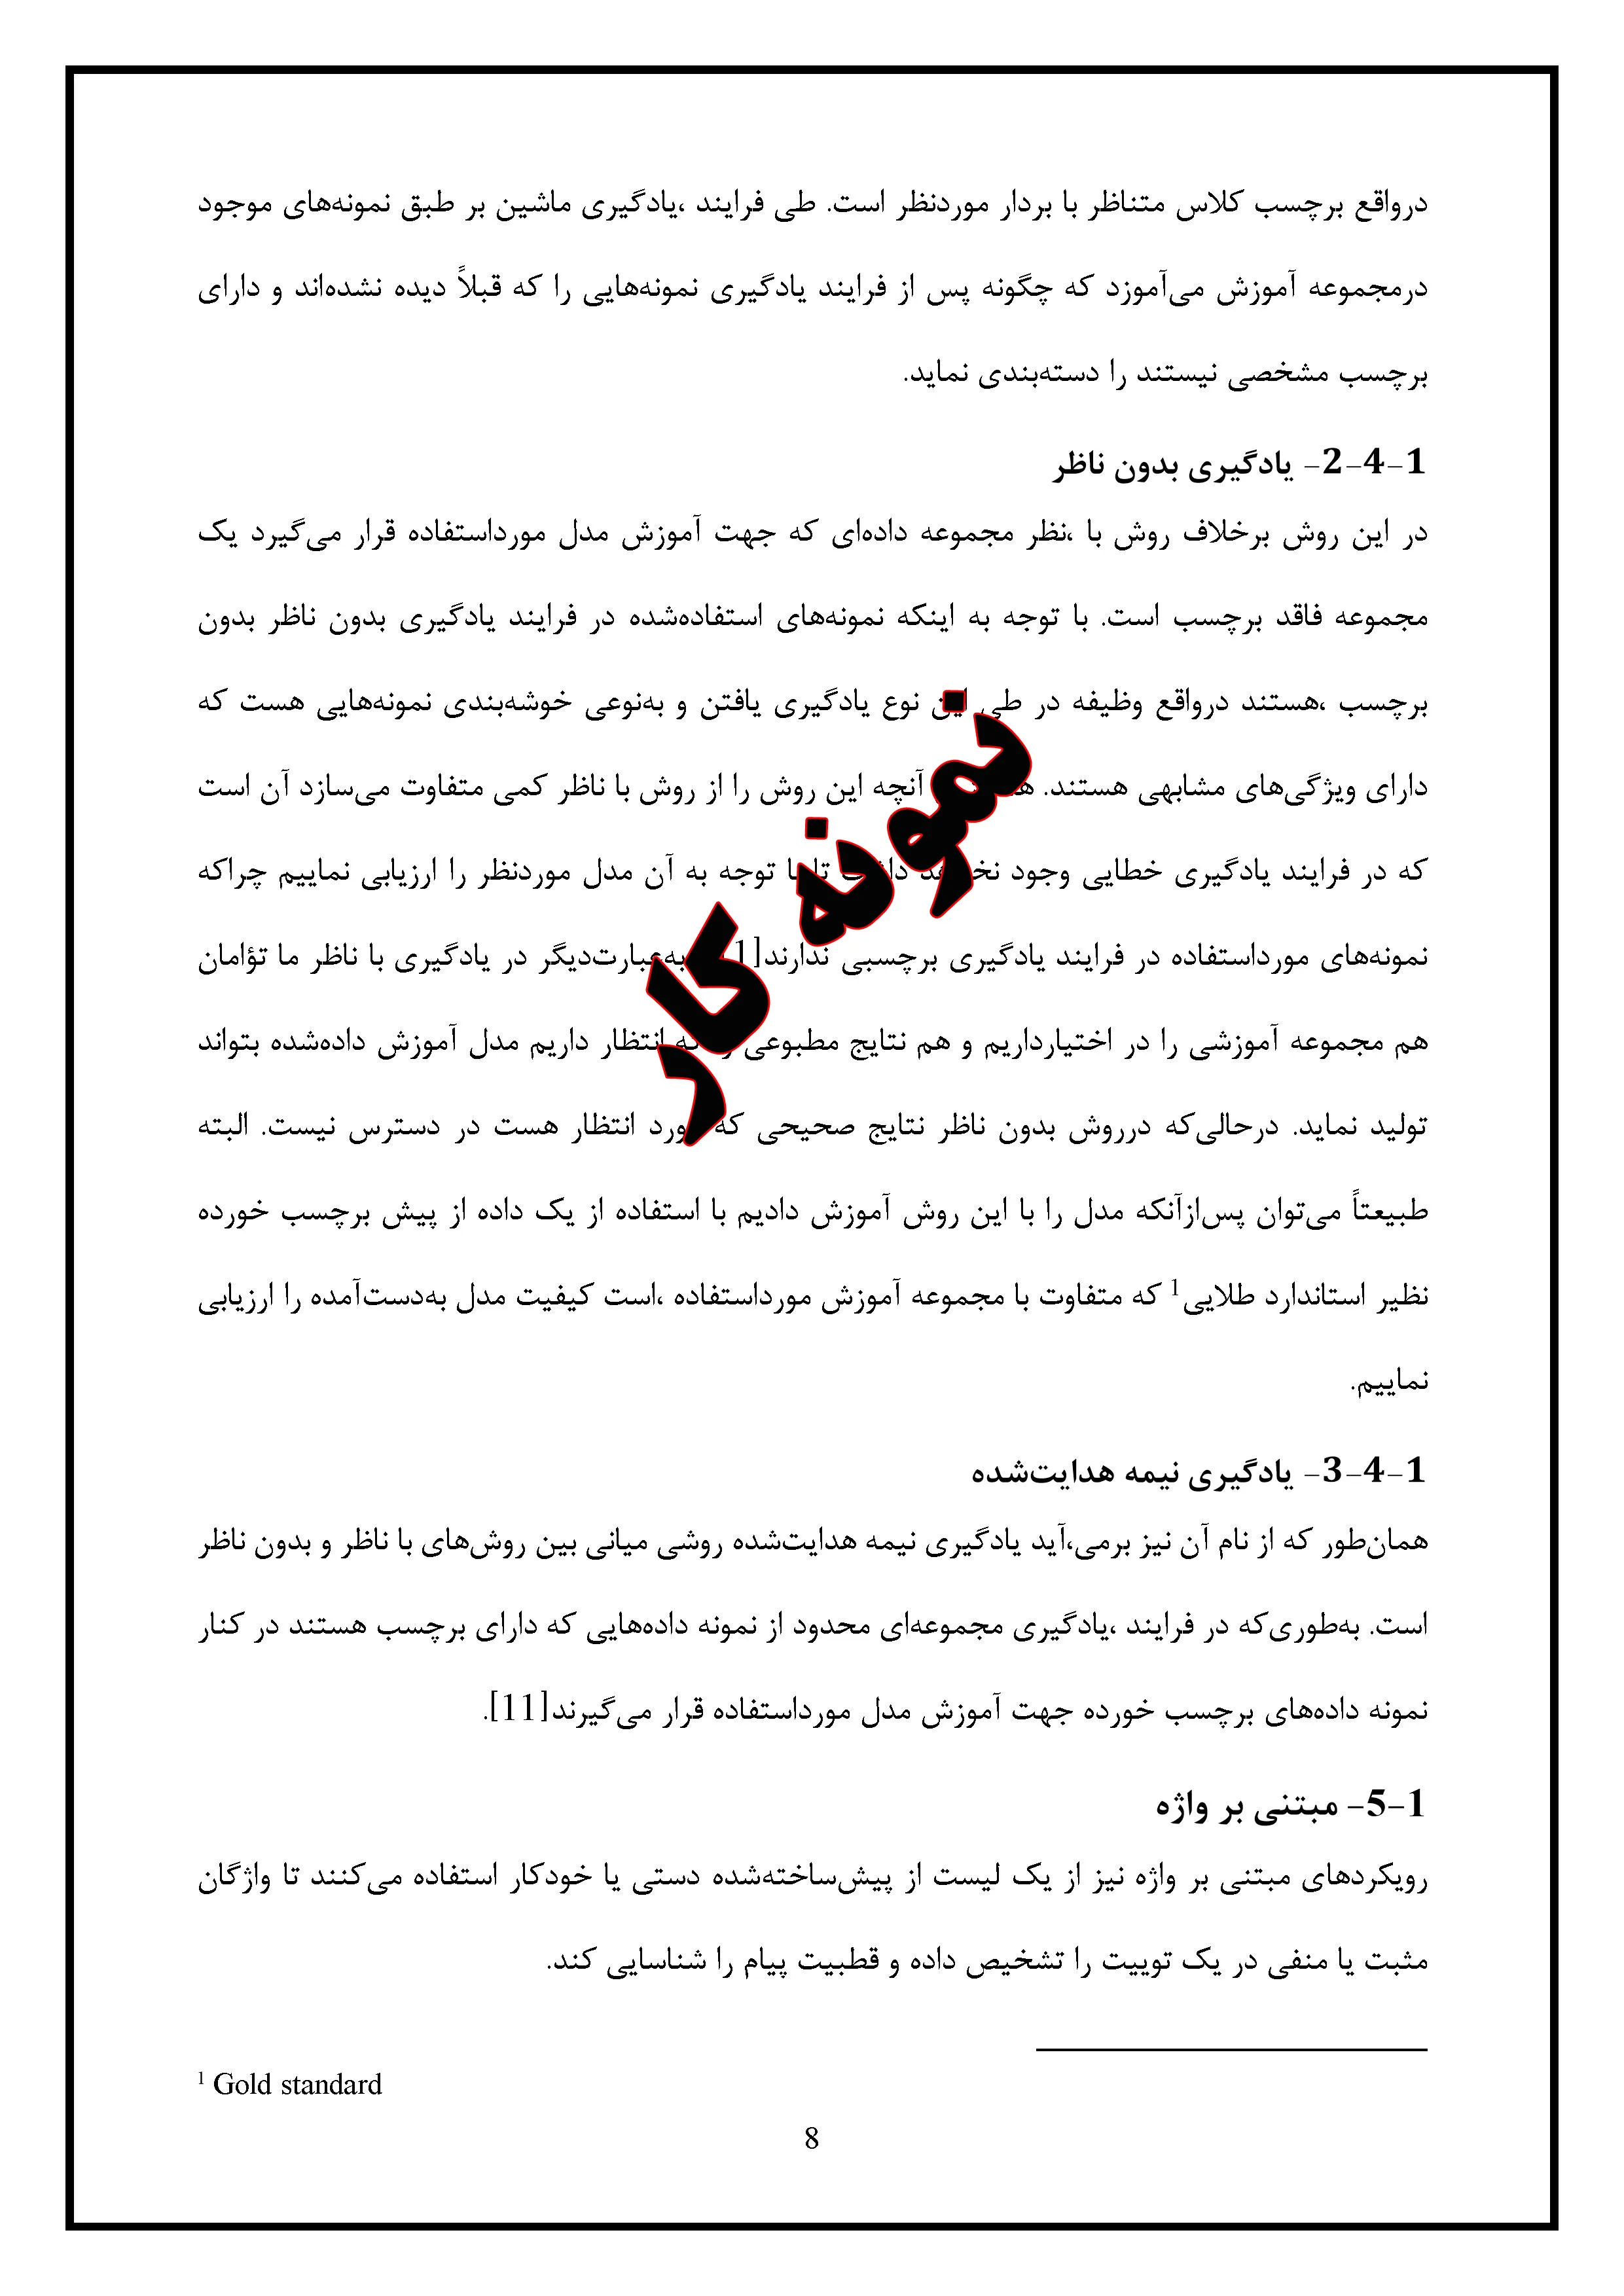 درواقع برچسب کلاس متناظر با بردار موردنظر است. طی فرایند ،یادگیری ماشین بر طبق نمونه‌های موجود
درمجموعه آموزش می‌آموزد که چگونه پس از فرایند یادگیری نمونه‌هایی را که قبلاً دیده نشده‌اند و دارای
برچسب مشخصی نیستند را دسته‌بندی نماید.
1-4-2- یادگیری بدون ناظر
در این روش برخلاف روش با ،نظر مجموعه داده‌ای که جهت آموزش مدل مورداستفاده قرار می‌گیرد یک
مجموعه فاقد برچسب است. با توجه به اینکه نمونه‌های استفاده‌شده در فرایند یادگیری بدون ناظر بدون
برچسب ،هستند درواقع وظیفه در طی این نوع یادگیری یافتن و به‌نوعی خوشه‌بندی نمونه‌هایی هست که
دارای ویژگی‌های مشابهی هستند. آنچه این روش را از روش با ناظر کمی متفاوت می‌سازد آن است
که در فرایند یادگیری خطایی وجود نخواهد داشت تا با توجه به آن مدل موردنظر را ارزیابی نماییم چراکه
نمونه‌های مورداستفاده در فرایند یادگیری برچسبی ندارند به‌عبارت‌دیگر در یادگیری با ناظر ما تؤامان
هم مجموعه آموزشی را در اختیارداریم و هم نتایج مطبوعی را که انتظار داریم مدل آموزش داده‌شده بتواند
تولید نماید. درحالی‌که درروش بدون ناظر نتایج صحیحی که مورد انتظار هست در دسترس نیست. البته
طبیعتاً می‌توان پس‌ازآنکه مدل را با این روش آموزش دادیم با استفاده از یک داده از پیش برچسب خورده
نظیر استاندارد طلایی1 که متفاوت با مجموعه آموزش مورداستفاده ،است کیفیت مدل به‌دست‌آمده را ارزیابی
نماییم.
1-4-3- یادگیری نیمه هدایت‌شده
همان‌طور که از نام آن نیز برمی،آید یادگیری نیمه هدایت‌شده روشی میانی بین روش‌های با ناظر و بدون ناظر
است. به‌طوری‌که در فرایند ،یادگیری مجموعه‌ای محدود از نمونه داده‌هایی که دارای برچسب هستند در کنار
نمونه داده‌های برچسب خورده جهت آموزش مدل مورداستفاده قرار می‌گیرند[11].
1-5- مبتنی بر واژه
رویکردهای مبتنی بر واژه نیز از یک لیست از پیش‌ساخته‌شده دستی یا خودکار استفاده می‌کنند تا واژگان
مثبت یا منفی در یک توییت را تشخیص داده و قطبیت پیام را شناسایی کند.
1 Gold standard
8
نمونه کار